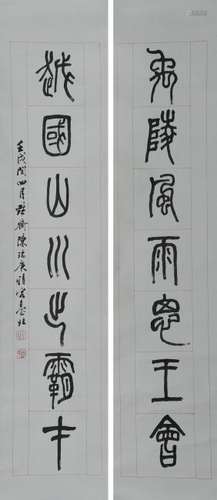 禹陵風雨思王會
越國山川出霸才
壬戌閏四月